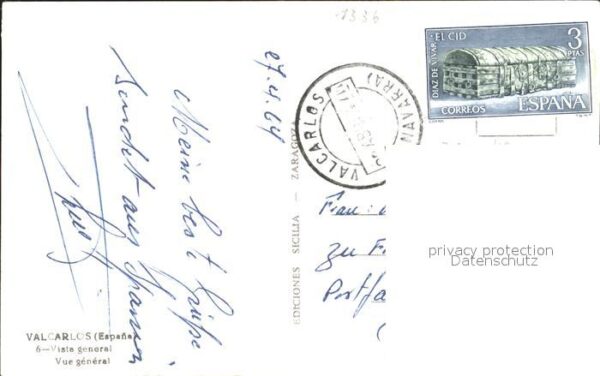 1336
27.4.64
Meine best Grüße
sendet aus Spanien
DIAZ DE VIVAR·EL CID
3
PTAS
CORREOS
ESPAÑA
VALCARLOS
(NAVARRA)
EDICIONES SICILIA — ZARAGOZA
Frau
zu
Postfa
privacy protection
Datenschutz
VALCARLOS (España)
6—Vista general
Vue général